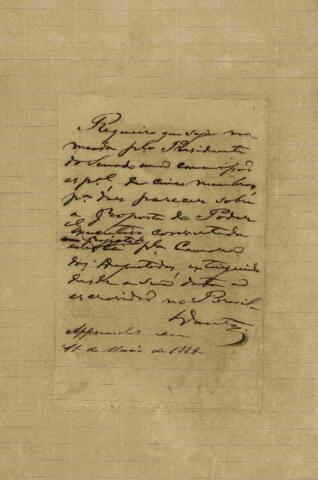 Requeiro que seja no-
meada pelo Presidente
do Senado uma commissão
especial de cinco membros
pa. dar parecer sobre
a Proposta do Poder
Executivo convertida
em projecto pela Camara
dos Deputados, extinguindo
desde a sua data a
escravidão no Brasil
Dantas
Approvado em
11 de Maio de 1888